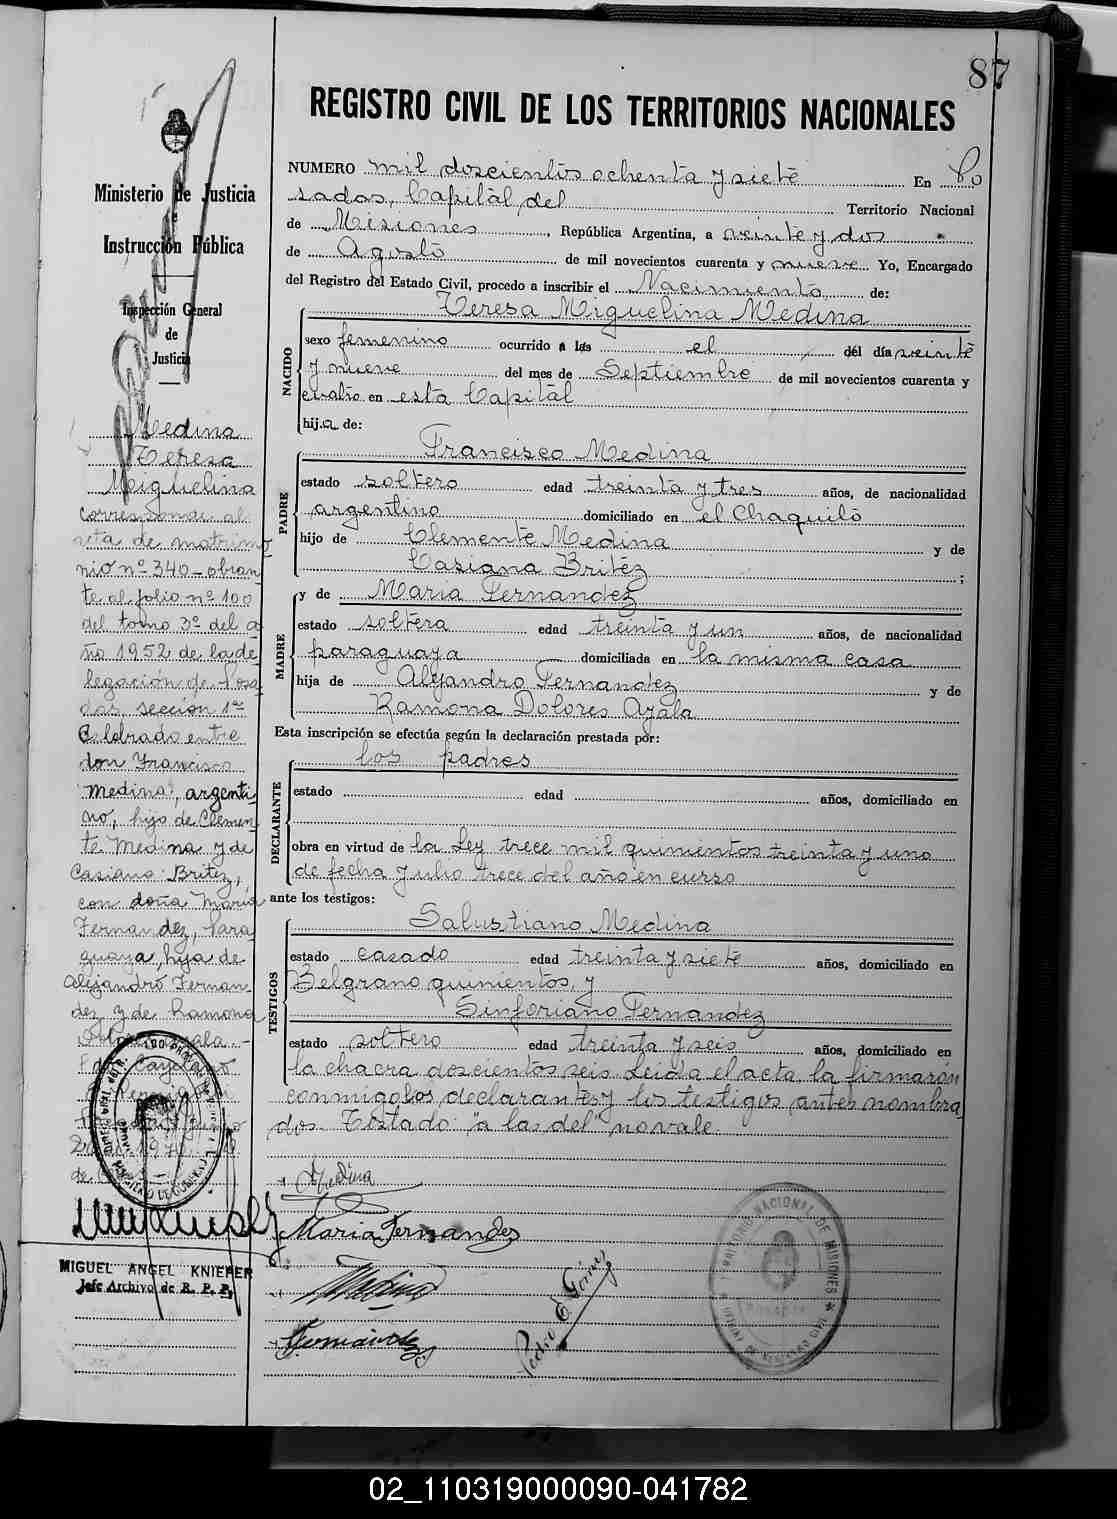 87
REGISTRO CIVIL DE LOS TERRITORIOS NACIONALES
NUMERO mil doscientos ochenta y siete En Po
sadas, Capital del Territorio Nacional
de Misiones, República Argentina, a veinte y dos
de Agosto de mil novecientos cuarenta y nueve Yo, Encargado
del Registro del Estado Civil, procedo a inscribir el Nacimiento de:
NACIDO
Teresa Miguelina Medina
sexo femenino ocurrido a las el del día veinte
y nueve del mes de Septiembre de mil novecientos cuarenta y
cuatro en esta Capital
hija de:
PADRE
Francisco Medina
estado soltero edad treinta y tres años, de nacionalidad
argentino domiciliado en el Chaquito
hijo de Clemente Medina y de
Casiana Britez ;
MADRE
y de Maria Fernandez
estado soltera edad treinta y un años, de nacionalidad
paraguaya domiciliada en la misma casa
hija de Alejandro Fernandez y de
Ramona Dolores Ayala
Esta inscripción se efectúa según la declaración prestada por:
DECLARANTE
los padres
estado edad años, domiciliado en
obra en virtud de la Ley trece mil quinientos treinta y uno
de fecha Julio trece del año en curso
ante los testigos:
TESTIGOS
Salustiano Medina
estado casado edad treinta y siete años, domiciliado en
Belgrano quinientos, y
Sinforiano Fernandez
estado soltero edad treinta y seis años, domiciliado en
la chacra doscientos seis. Leida el acta la firmaron
conmigo los declarantes y los testigos antes nombra
dos. Testado: "a las del" no vale.
Medina
Maria Fernandez
Medina
Fernandez
Pedro
TERRITORIO NACIONAL DE MISIONES
Ministerio de Justicia
e
Instrucción Pública
Inspección General
de
Justicia
Medina
Teresa
Miguelina
Corresponde al
acta de matrimo
nio nº 340 - obran
te al folio nº 100
del tomo 3º del a
ño 1952 de la de
legación de Posa
das sección 1ra
Celebrado entre
don Francisco
Medina, argenti
no, hijo de Clemen
te Medina y de
Casiana Britez,
con doña Maria
Fernandez, Para
guaya, hija de
Alejandro Fernan
dez y de Ramona
MIGUEL ANGEL KNIEFER
Jefe Archivo de R. P. P.
02_110319000090-041782